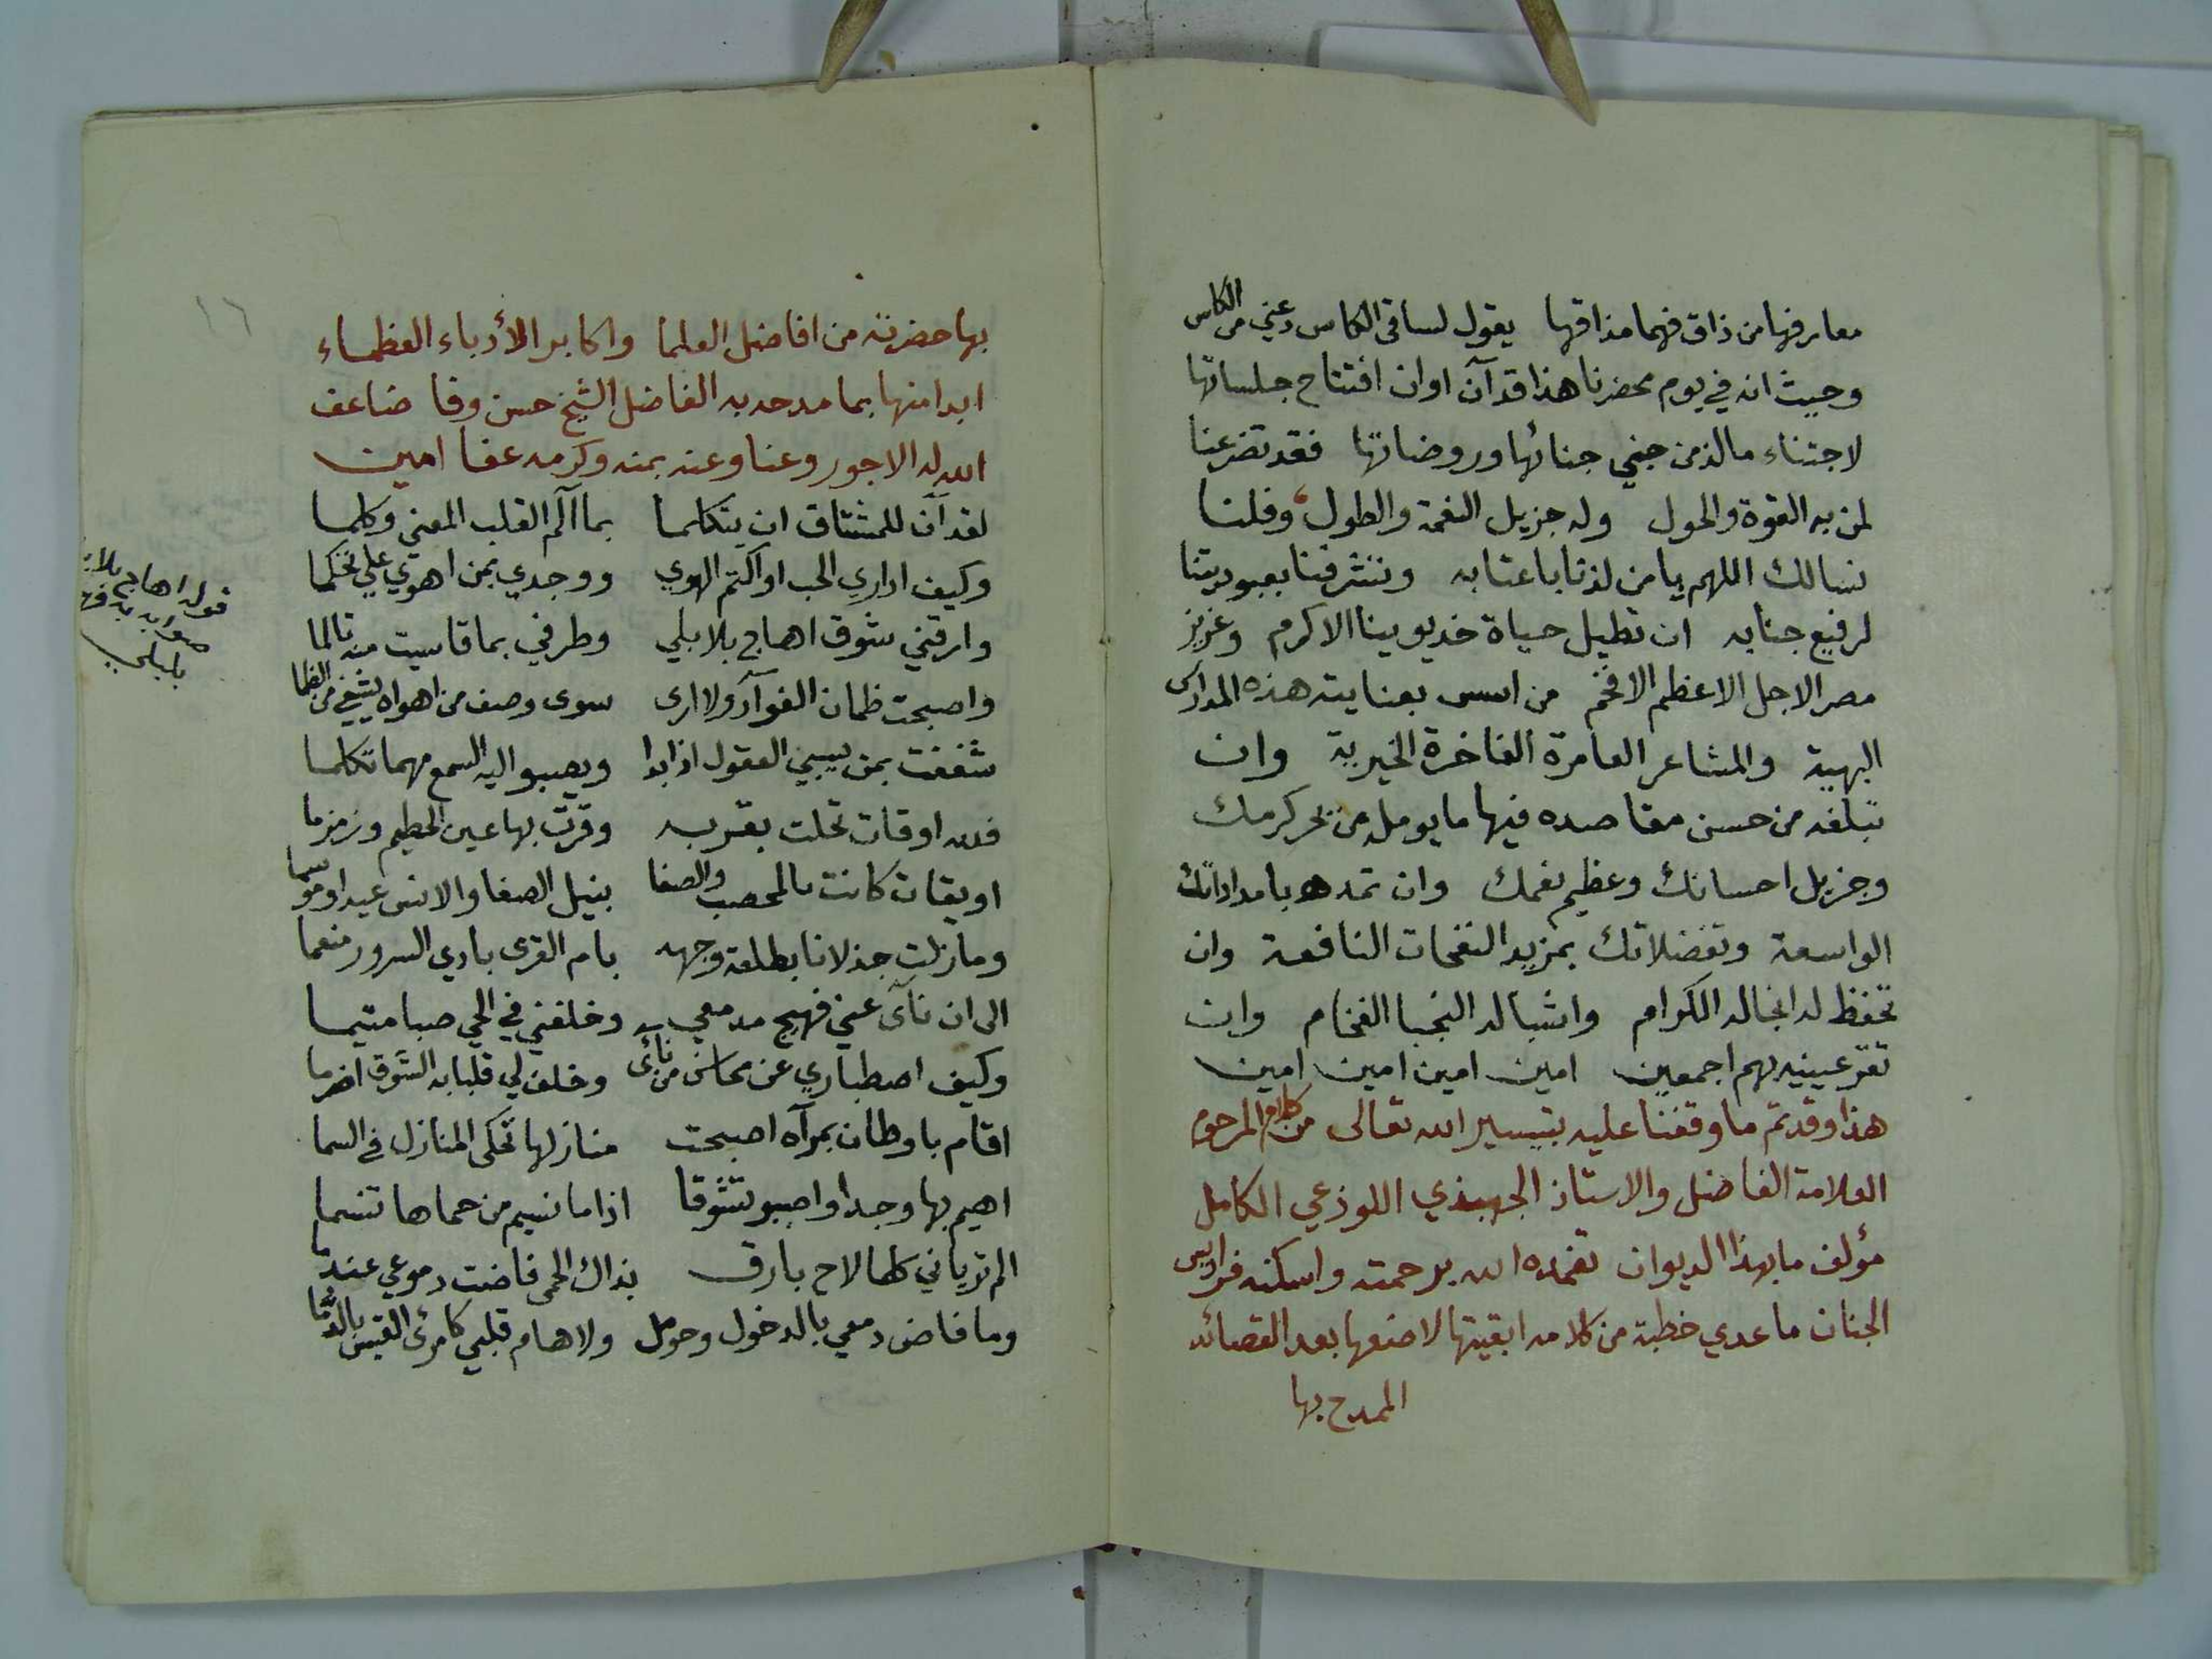 معارفها من ذاق فهما مذاقها يقول لساقي الكاس دعني من الكاس
وحيث انه في يوم محضرنا هذا قد آن اوان افتتاح جلساتها
لاجتناء مالذ من جني جنائها وروضاتها فقد تضرعنا
لمن به القوة والحول وله جزيل النعمة والطول وقلنا
نسالك اللهم يا من لذنا باعتابه ونتشرفنا بعبوديتنا
لرفيع جنابه ان تطيل حياة خديوينا الاكرم وعزيز
مصر الاجل الاعظم الافخم من اسس بعنايته هذه المدارس
البهية والمشاعر العامرة الفاخرة الخيرية وان
تبلغه من حسن مقاصده فيها ما يومله من بحر كرمك
وجزيل احسانك وعظيم نعمك وان تمده بامداداتك
الواسعة وتفضلاتك بمزيد النفحات النافعة وان
تحفظ له انجاله الكرام واشباله النجبا الفخام وان
تقر عينيه بهم اجمعين امين امين امين امين
هذا وقد تم ما وقفنا عليه بتيسير الله تعالى من كلام المرحوم
العلامة الفاضل والاستاذ الجهبذي اللوذعي الكامل
مؤلف ما بهذا الديوان تغمده الله برحمته واسكنه فراديس
الجنان ما عدي خطبة من كلامه ابقيتها لاضعها بعد القصائد
الممدح بها
١٦
بها حضرته من افاضل العلما واكابر الأدباء العظماء
ابدا منها بما مدحه به الفاضل الشيخ حسن وفا ضاعف
الله له الاجور وعنا وعنه بمنه وكرمه عفا امين
لقد آن للمشتاق ان يتكلما بما آلم القلب المعنى وكلما
وكيف اداري الحب او اكتم الهوي ووجدي بمن اهوي علي تحكما
وارقني شوق اهاج بلابلي وطرفي بما قاسيت منه تالما
واصبحت ظمان الفوآد ولا ارى سوى وصف من اهواه يشفي من الظما
شغفت بمن يسبي العقول اذا بدا ويصبو اليه السمع مهما تكلما
فلله اوقات تحلت بقربه وقرت بها عين الحطيم وزمزما
اويقات كانت بالمحصب والصفا بنيل الصفا والانس عيدا وموسما
وما زلت جذلانا بطلعة وجهه بام القرى بادي السرور منعما
الى ان نآى عني فهيج مدمعي وخلفني في الحي صبا متيما
وكيف اصطباري عن محاسن من نأى وخلف لي قلبا به الشوق اضرما
اقام باوطان بمرآه اصبحت منازلها تحكى المنازل في السما
اهيم بها وجدا واصبو تشوقا اذا ما نسيم من حماها تنسما
الم ترياني كلما لاح بارق بذاك الحمى فاضت دموعي عندما
وما فاض دمعي بالدخول وحومل ولا هام قلبي كامرئ القيس بالدما
قوله اهاج بلا
صوابه
بلبلي